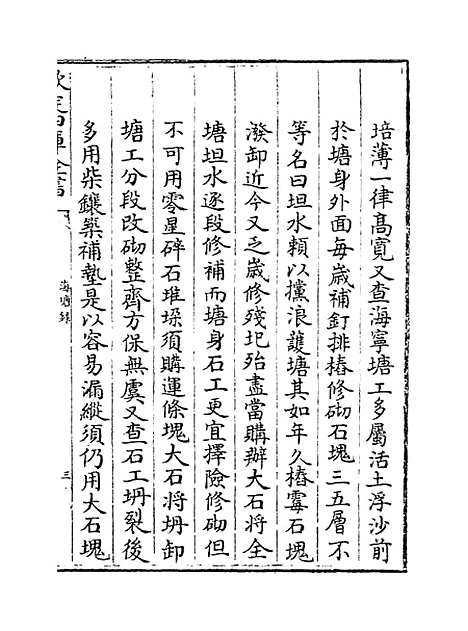 培薄一律高寛又查海寧塘工多屬活土浮沙前
於塘身外面每嵗補釘排樁修砌石塊三五層不
等名曰坦水頼以攩浪䕶塘其如年久樁霉石塊
潑卸近今又乏嵗修殘圮殆盡當購辦大石將全
塘坦水逐段修補而塘身石工更宜擇險修砌但
不可用零星碎石堆垜須購運條塊大石將坍卸
塘工分段改砌整齊方保無虞又查石工坍裂後
多用柴鑲築補墊是以容易漏縱須仍用大石塊
欽定四庫全書
海塘録
三